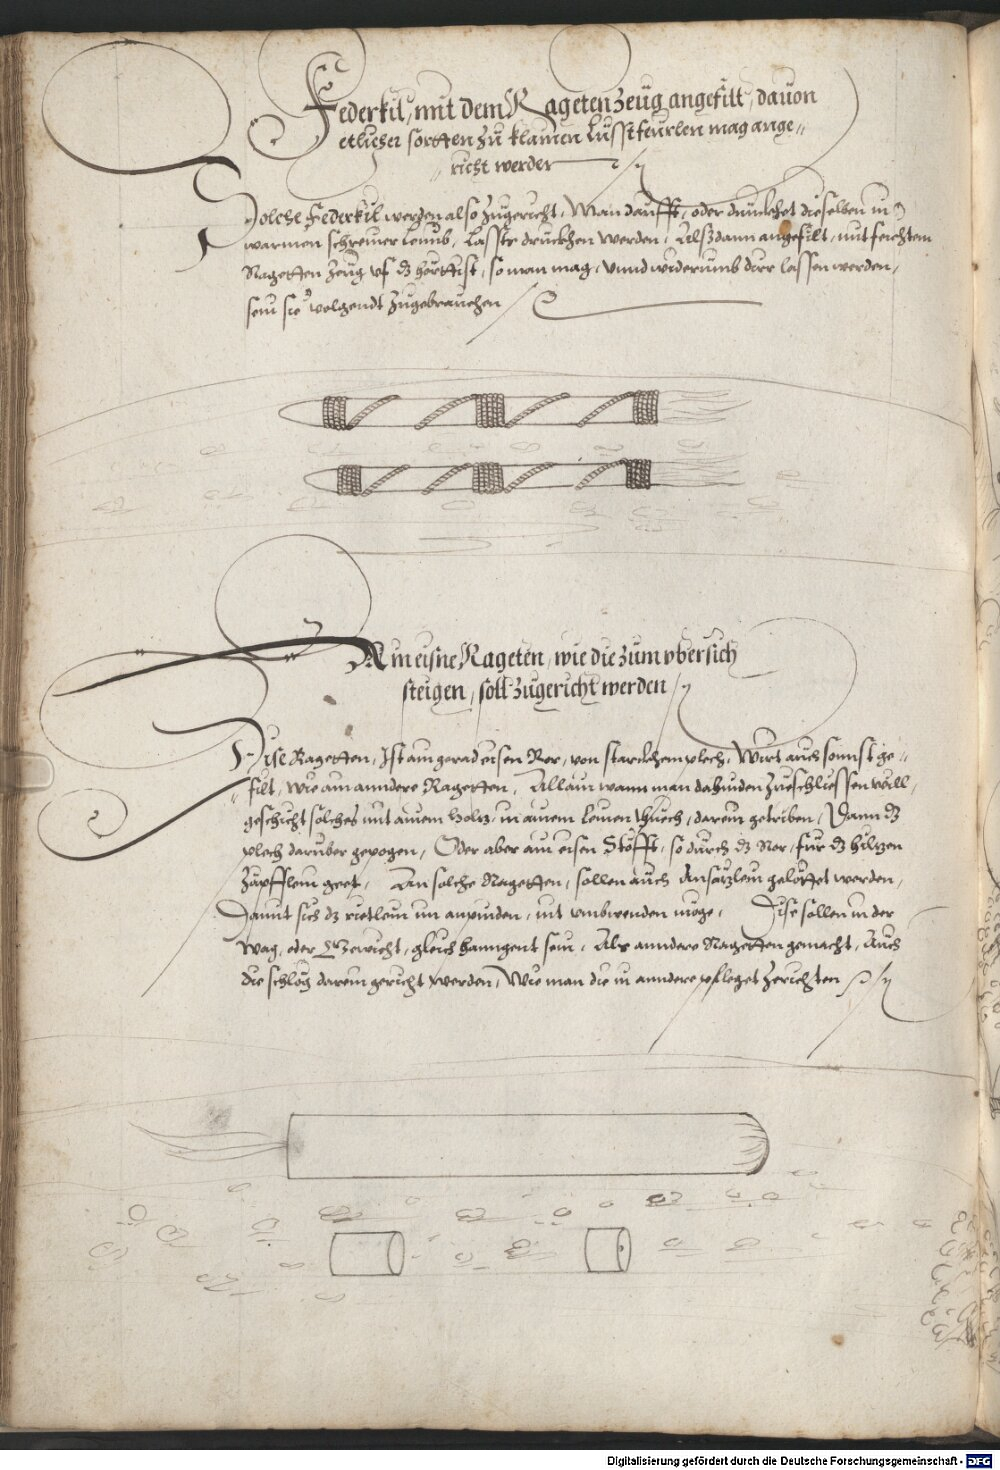 Federkil, mit dem Ragetenzeüg angefilt, dauon
etlicher sortten zu klainen Lusstfeurlen mag ange„
„richt werden
Solche Federkil werden also zugericht, Man daufft, oder duncket dieselben in
warmen schreiner Leimb, Lasstr druckhen werden, Alsdann angefilt, mit feichtem
Ragetten Zeüg vf dz hörttist, so man mag, vnnd widerumb dirr lassen werden,
sein sie volgendt Zugebrauchen
Ain eisne Rageten, wie die zum vbersich
steigen, soll zugericht werden
Dise Ragetten, Ist ain gerad eisen Ror, von starckhem plech, Wirt auch sonnst ge„
„filt, wie ain anndere Ragetten, Allain wann man dahinden Zueschliessen will
geschicht solches mit ainem Holtz, in ainem Leinen thuech, darein getriben, Dann dz
plech darüber gepogen, Oder aber ain eisen Stofft, so durch dz Ror, für dz hiltzen
Zäpfflein geet, An solche Ragetten, sollen auch Ansätzlein gelöttet werden,
Damit sich dz rietlein im anpinden, nit vmbwenden möge, Dise sollen in der
Wag, oder Gewicht, gleich hanngent sein, Als anndere Ragetten gemacht, Auch
die schlög darein gericht werden, Wie man die in anndere pfleget Zerichten
Digitalisierung gefördert durch die Deutsche Forschungsgemeinschaft - DFG